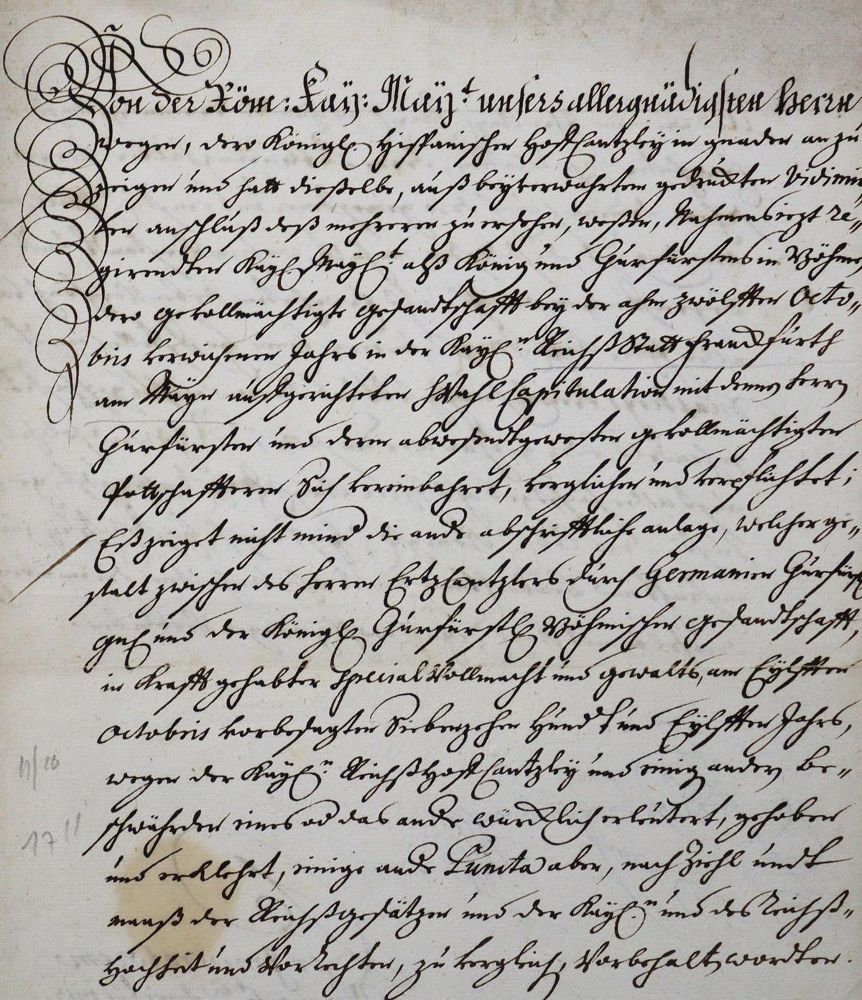 Von der Röm: Kay: May:t unsers allergnädigsten Herrn
wegen, dero Königl. Hispanischen HoffCantzley in gnaden an zu
zeigen und hatt dieselbe, auß beyverwahrtem gedruckten Vidimir-
ten anschluß deß mehreren zu ersehen, weßen, Nahmens iezt re-
girendten Kayl. May:t alß König und Churfürstens in Böhmen,
dero gevollmächtigte gesandtschafft bey der ahm zwölfften Octo-
bris verwichenen Jahrs in der Kayl.n Reichß Statt Franckfürth
am Mayn außgerichteten Wahl Capitulation mit denen Herrn
Churfürsten und deren abwesendtgewesten gevollmächtigten
Pottschafftern Sich vereinbahret, verglichen und verpflichtet;
Eß zeiget nicht mind die ande abschrifftliche anlage, welcher ge-
stalt zwischen des Herrn ErtzCantzlers durch Germanien Churfürstl.
gnl. und der Königl. Churfürstl. Böhmischen gesandtschafft,
in krafft gehabter special Vollmacht und gewalts, am Eylfften
Octobris vorbesagten Siebenzehen Hundt und Eylfften Jahrs,
wegen der Kayl.n ReichßHoffCantzley und einig andern be-
schwährden eines od das ande würcklich erleutert, gehoben
und erklehrt, einige ande Puncta aber, nach Ziehl undt
maaß der Reichßgesätzen und der Kayl.n und des Reichß-
Hochheit und Vorrechten, zu vergleichen Vorbehalten wordten.
11/10
1711